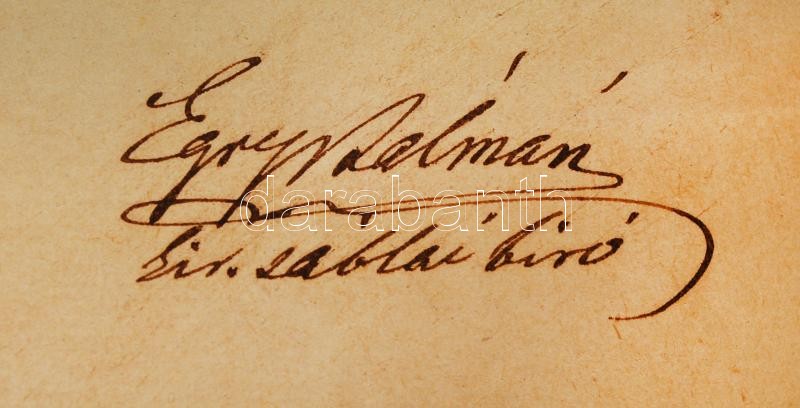 Egry Kálmán
darabanth
kir. táblai biró